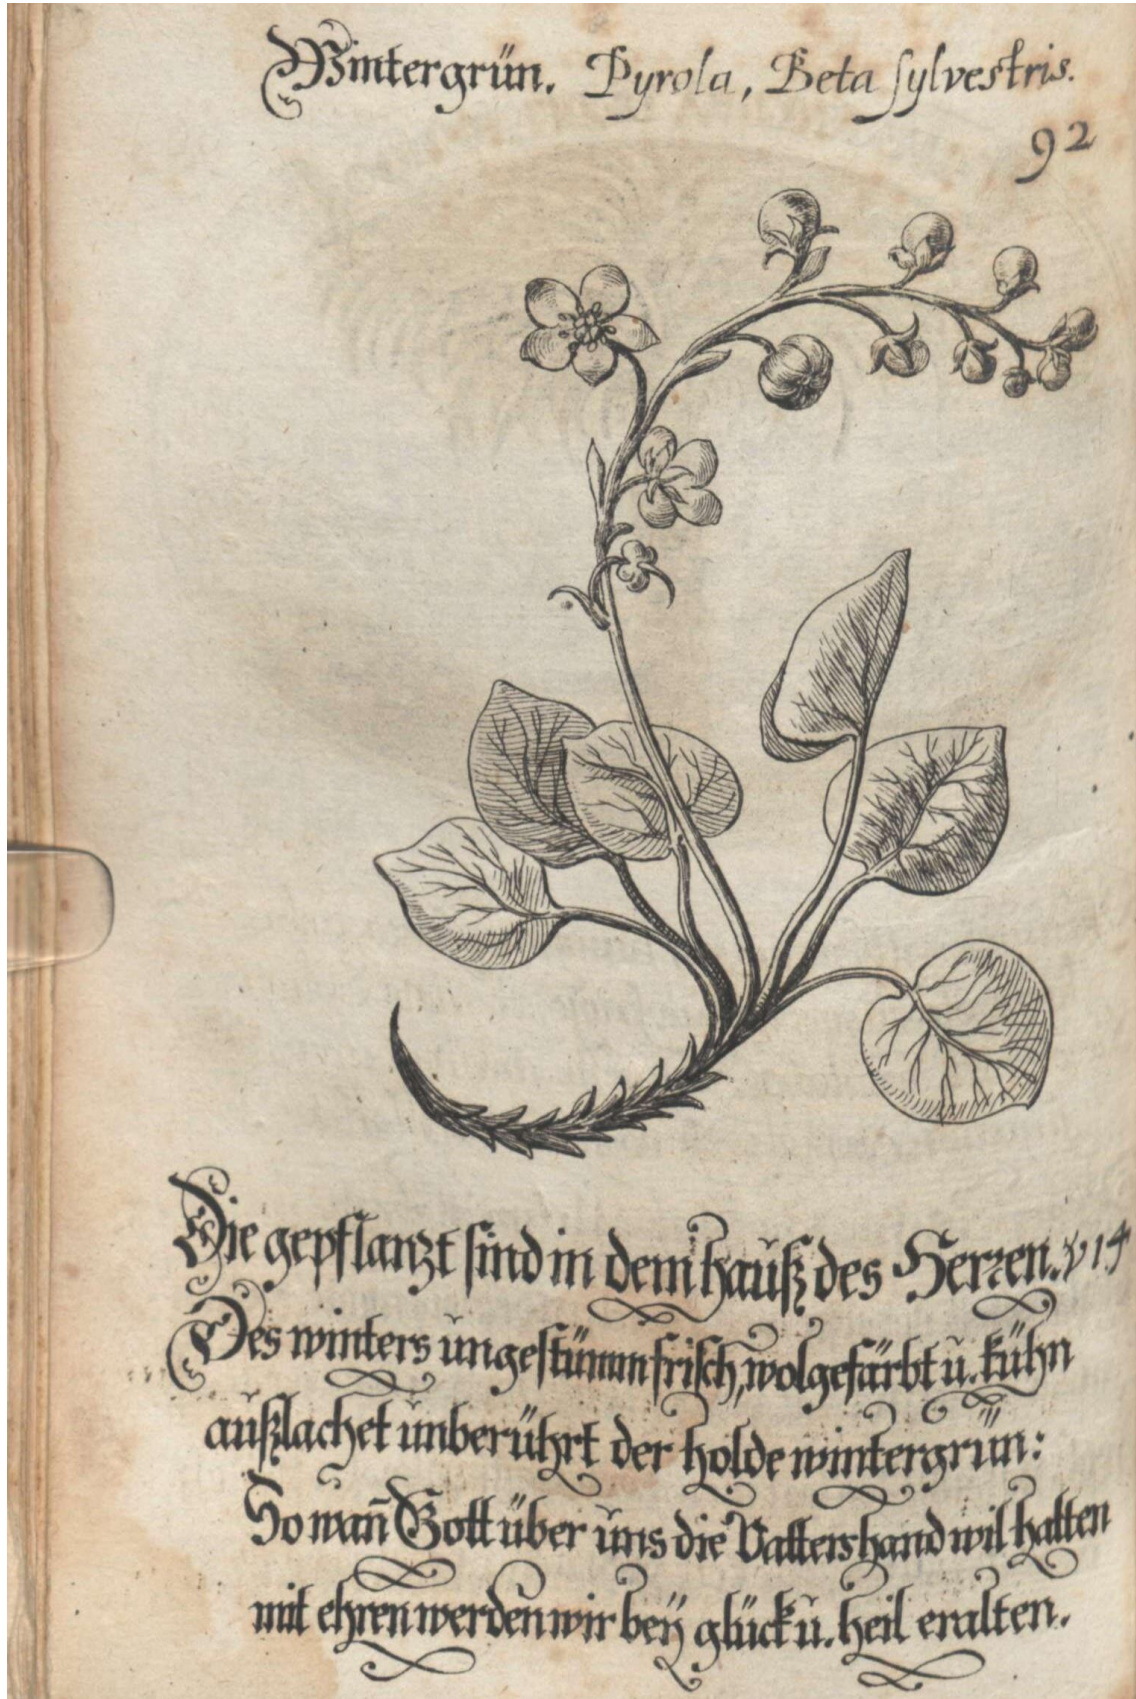 Wintergrün. Pyrola, Beta sylvestris.
92
Die gepflanzt sind in dem hauß des Herren. v 14
Des winters ungestümm frisch, wolgefärbt u. kühn
außlachet unberührt der holde wintergrün:
So wan̄ Gott über uns die Vattershand wil halten
mit ehren werden wir beÿ glück u. heil eralten.